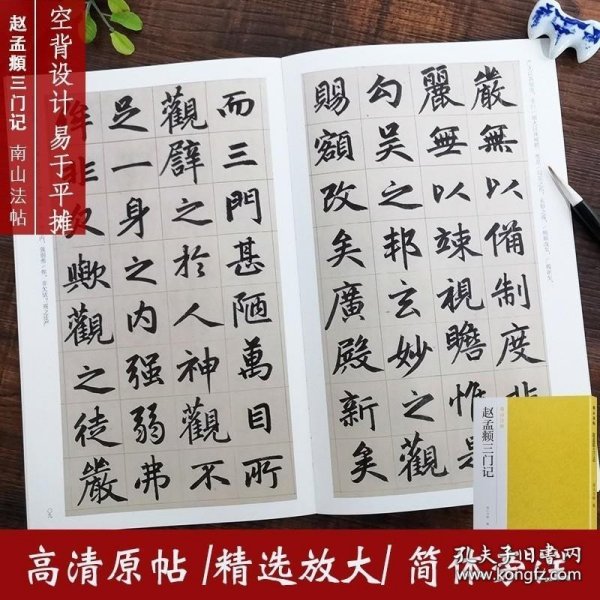 赵孟頫三门记 南山法帖
空背设计 易于平摊
嚴無以備制度非
麗無以竦視瞻惟是
勾吴之邦玄妙之觀
賜額改矣廣殿新矣
而三門甚陋萬目所
觀譬之於人神觀不
足一身之内强弱弗
侔非欠歟觀之徒嚴
赵孟頫三门记
高清原帖/精选放大/简体旁注
孔夫子旧书网
www.kongfz.com